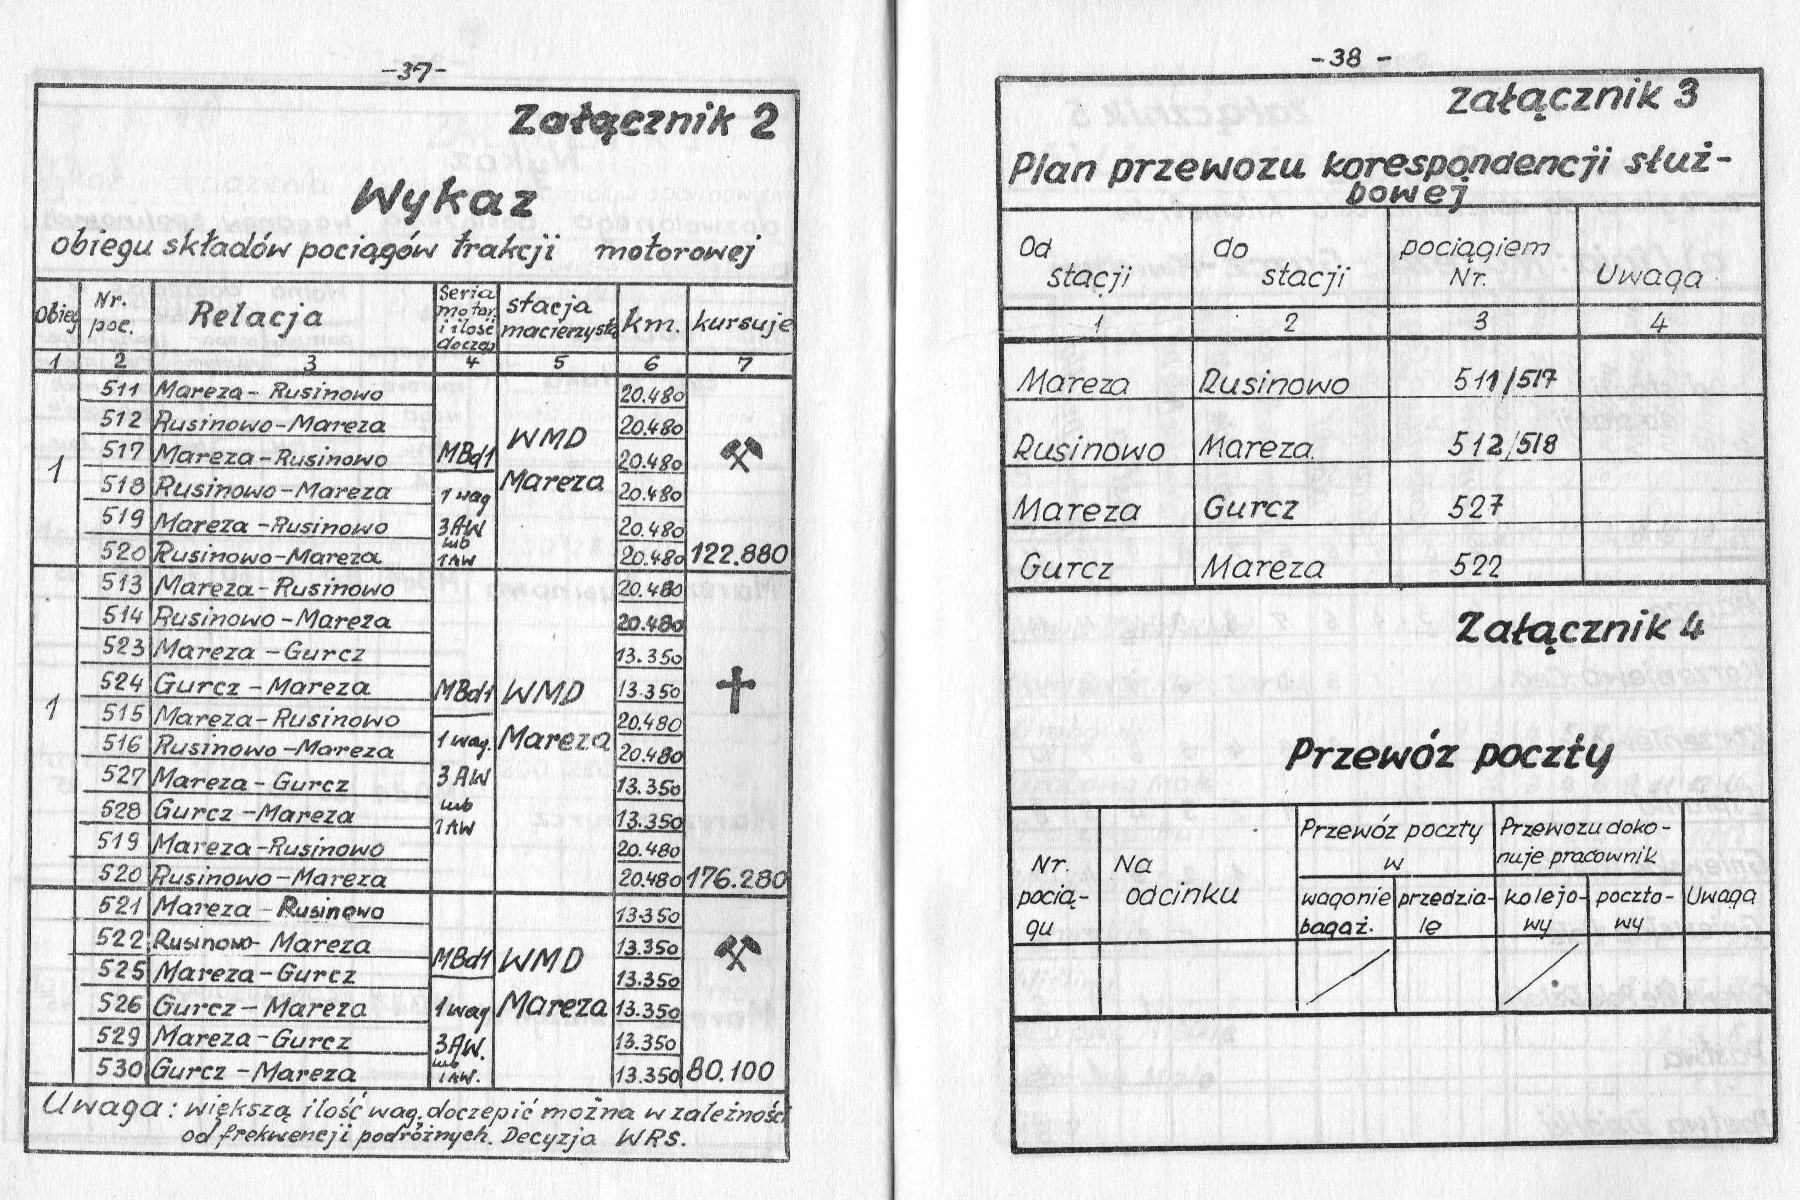 -37-
Załącznik 2
Wykaz
obiegu składów pociągów trakcji motorowej
Obieg Nr. poc. Relacja Seria motor. i ilość doczep stacja macierzysta km. kursuje
1 2 3 4 5 6 7
511 Mareza - Rusinowo 20.480
512 Rusinowo - Mareza 20.480
517 Mareza - Rusinowo 20.480
518 Rusinowo - Mareza 20.480
519 Mareza - Rusinowo 20.480
520 Rusinowo - Mareza 20.480 122.880
1 MBd1 1 wag 3 AW lub 1 AW WMD Mareza ⚒
513 Mareza - Rusinowo 20.480
514 Rusinowo - Mareza 20.480
523 Mareza - Gurcz 13.350
524 Gurcz - Mareza 13.350
515 Mareza - Rusinowo 20.480
516 Rusinowo - Mareza 20.480
527 Mareza - Gurcz 13.350
528 Gurcz - Mareza 13.350
519 Mareza - Rusinowo 20.480
520 Rusinowo - Mareza 20.480 176.280
1 MBd1 1 wag. 3 AW lub 1 AW WMD Mareza ✝
521 Mareza - Rusinowo 13.350
522 Rusinowo - Mareza 13.350
525 Mareza - Gurcz 13.350
526 Gurcz - Mareza 13.350
529 Mareza - Gurcz 13.350
530 Gurcz - Mareza 13.350 80.100
MBd1 1 wag 3 AW. lub 1 AW. WMD Mareza ⚒
Uwaga: większą ilość wag. doczepić można w zależności
od frekwencji podróżnych. Decyzja WRs.
-38-
Załącznik 3
Plan przewozu korespondencji służ-
bowej
Od stacji do stacji pociągiem Nr. Uwaga
1 2 3 4
Mareza Rusinowo 511/517
Rusinowo Mareza 512/518
Mareza Gurcz 527
Gurcz Mareza 522
Załącznik 4
Przewóz poczty
Nr. pocią-gu Na odcinku Przewóz poczty w Przewozu doko-nuje pracownik
wagonie bagaż. przedzia-le kolejo-wy poczto-wy Uwaga